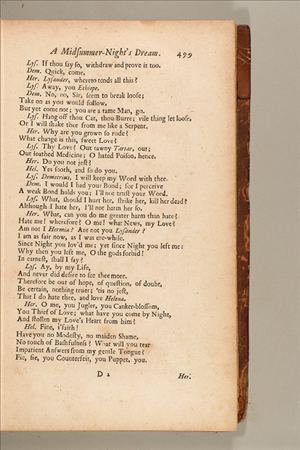 A Midsummer-Night's Dream. 499
Lys. If thou say so, withdraw and prove it too.
Dem. Quick, come.
Her. Lysander, whereto tends all this?
Lys. Away, you Ethiope.
Dem. No, no, Sir, seem to break loose;
Take on as you would follow,
But yet come not: you are a tame Man, go.
Lys. Hang off thou Cat, thou Burr; vile thing let loose,
Or I will shake thee from me like a Serpent.
Her. Why are you grown so rude?
What change is this, sweet Love?
Lys. Thy Love? Out tawny Tartar, out;
Out loathed Medicine; O hated Poison, hence.
Her. Do you not jest?
Hel. Yes sooth, and so do you.
Lys. Demetrius, I will keep my Word with thee.
Dem. I would I had your Bond; for I perceive
A weak Bond holds you; I'll not trust your Word.
Lys. What, should I hurt her, strike her, kill her dead?
Although I hate her, I'll not harm her so.
Her. What, can you do me greater harm than hate?
Hate me! wherefore? O me! what News, my Love?
Am not I Hermia? Are not you Lysander?
I am as fair now, as I was ere-while.
Since Night you lov'd me; yet since Night you left me:
Why then you left me, O the gods forbid!
In earnest, shall I say?
Lys. Ay, by my Life,
And never did desire to see thee more.
Therefore be out of hope, of question, of doubt,
Be certain, nothing truer; 'tis no jest,
That I do hate thee, and love Helena.
Her. O me, you Jugler, you Canker-blossom,
You Thief of Love; what have you come by Night,
And stollen my Love's Heart from him?
Hel. Fine, i'faith!
Have you no Modesty, no maiden Shame,
No touch of Bashfulness? What will you tear
Impatient Answers from my gentle Tongue?
Fie, fie, you Counterfeit, you Puppet, you.
D 2 Her.